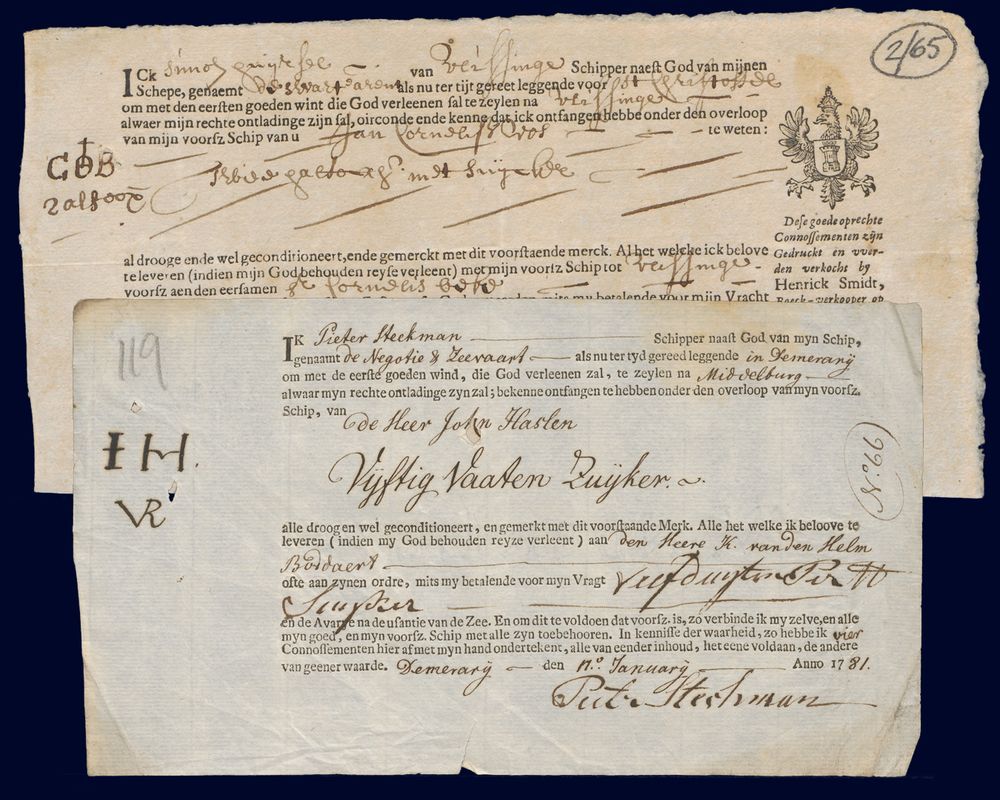 2/65
ICk Simon van Vlissinge Schipper naest God van mijnen
Schepe, genaemt de swarte arent als nu ter tijt gereet leggende voor St Christoffel
om met den eersten goeden wint die God verleenen sal te zeylen na Vlissinge
alwaer mijn rechte ontladinge zijn sal, oirconde ende kenne dat ick ontfangen hebbe onder den overloop
van mijn voorsz Schip van u Jan Cornelisse Vos te weten:
GOB
met suijcker
al drooge ende wel geconditioneert, ende gemerckt met dit voorstaende merck. Al het welche ick belove
te leveren (indien mijn God behouden reyse verleent) met mijn voorsz Schip tot Vlissinge
voorsz aen den eersamen Sr Cornelis
mits my betalende voor mijn Vracht
Dese goede oprechte
Connossementen zijn
Gedruckt en wor-
den verkocht by
Henrick Smidt,
Boeck-verkooper op
119
IK Pieter Steckman Schipper naast God van myn Schip,
genaamt de Negotie & Zeevaart als nu ter tyd gereed leggende in Demerarÿ
om met de eerste goeden wind, die God verleenen zal, te zeylen na Middelburg
alwaar myn rechte ontladinge zyn zal; bekenne ontfangen te hebben onder den overloop van myn voorsz.
Schip, van
de Heer John Haslen
Vÿftig Vaaten Zuÿker.
IH.
VR
No. 66
alle droog en wel geconditioneert, en gemerkt met dit voorstaande Merk. Alle het welke ik beloove te
leveren (indien my God behouden reyze verleent) aan den Heere K. van den Helm
Boddaert
ofte aan zynen ordre, mits my betalende voor myn Vragt Vijf duyten Per tt
Suyker
en de Avarye na de usantie van de Zee. En om dit te voldoen dat voorsz. is, zo verbinde ik my zelve, en alle
myn goed, en myn voorsz. Schip met alle zyn toebehooren. In kennisse der waarheid, zo hebbe ik vier
Connossementen hier af met myn hand ondertekent, alle van eender inhoud, het eene voldaan, de andere
van geener waarde. Demerarÿ den 17.e Januarÿ Anno 1781.
Pieter Steckman